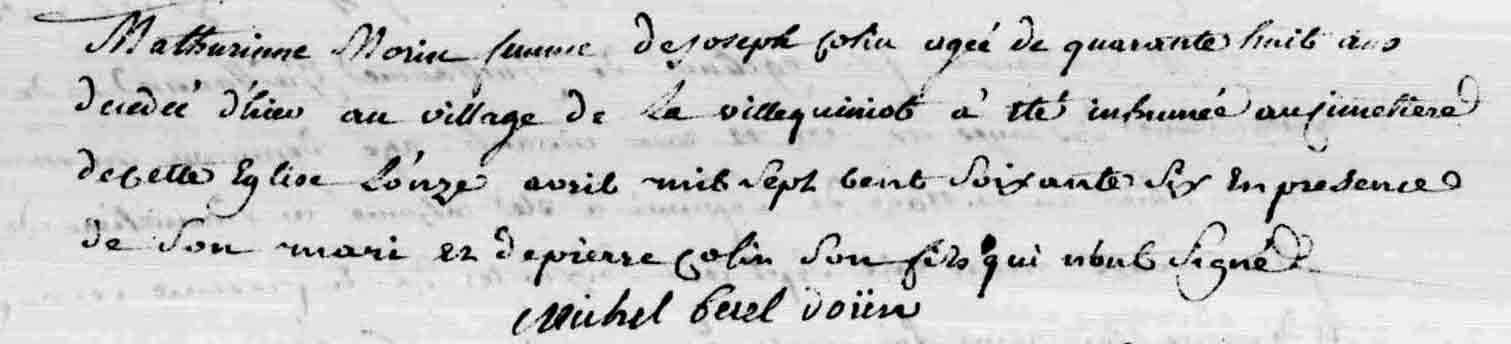 Mathurinne Morin femme de Joseph Colin agée de quarante huit ans
decedée d'hier au village de La villequiniot à été inhumée au cimetiere
de Cette Eglise L'onze avril mil Sept Cent Soixante Six En presence
de Son mari et de pierre Colin Son fils qui n'ont Signé
Michel doüen